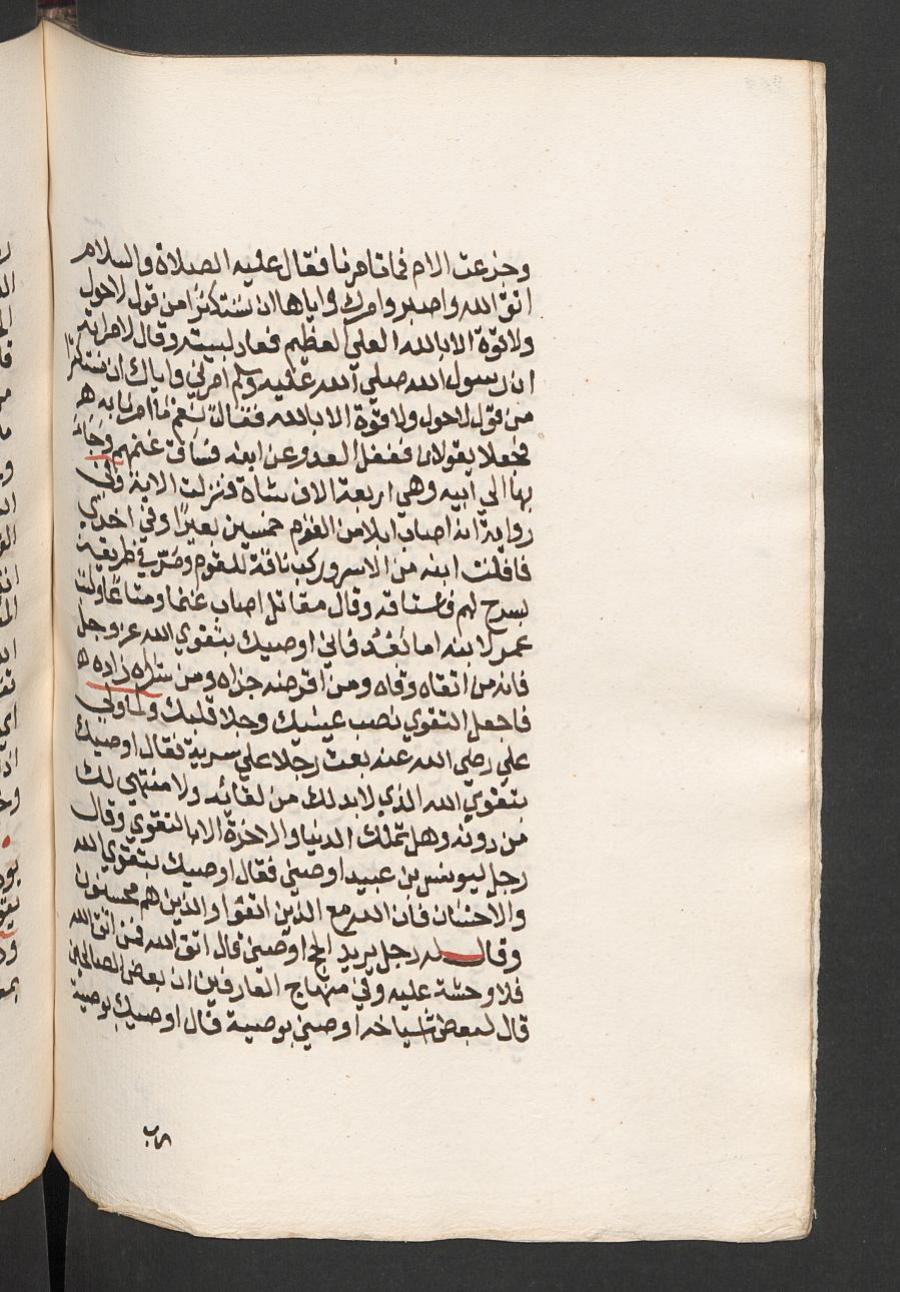 وجزعت الام فما تامرنا فقال عليه الصلاة والسلام
اتق الله واصبر وامرك واياها ان تستكثرا من قول لا حول
ولا قوة الا بالله العلي العظيم فعاد لبيته وقال لامراته
ان رسول الله صلي الله عليه وسلم امرني واياك ان نستكثر
من قول لا حول ولا قوة الا بالله فقالت نعم ما امرنا به
فجعلا يقولان فغفل العدو عن ابنه فساق غنمهم وجاء
بها الي ابيه وهي اربعة الاف شاة فنزلت الاية وفي
رواية انه اصاب ابلا من القوم خمسين بعيرا وفي اخري
فافلت ابنه من الاسر وركب ناقة للقوم ومر في طريقه
بسرح لهم فاستاقه وقال مقاتل اصاب غنما ومتاعا وكتب
عمر لابنه اما بعد فاني اوصيك بتقوي الله عز وجل
فانه من اتقاه وقاه ومن اقرضه جزاه ومن شكره زاده
فاجعل التقوي نصب عينيك وجلا قلبك ولما ولي
علي رضي الله عنه بعث رجلا علي سرية فقال اوصيك
بتقوي الله الذي لا بد لك من لقائه ولا منتهي لك
من دونه وهل تملك الدنيا والاخرة الا بالتقوي وقال
رجل ليونس بن عبيد اوصني فقال اوصيك بتقوي الله
والاحسان فان الله مع الذين اتقوا والذين هم محسنون
وقال له رجل يريد الحج اوصني قال اتق الله فمن اتق الله
فلا وحشة عليه وفي منهاج العارفين ان بعض الصالحين
قال لبعض اشياخه اوصني بوصية قال اوصيك بوصية